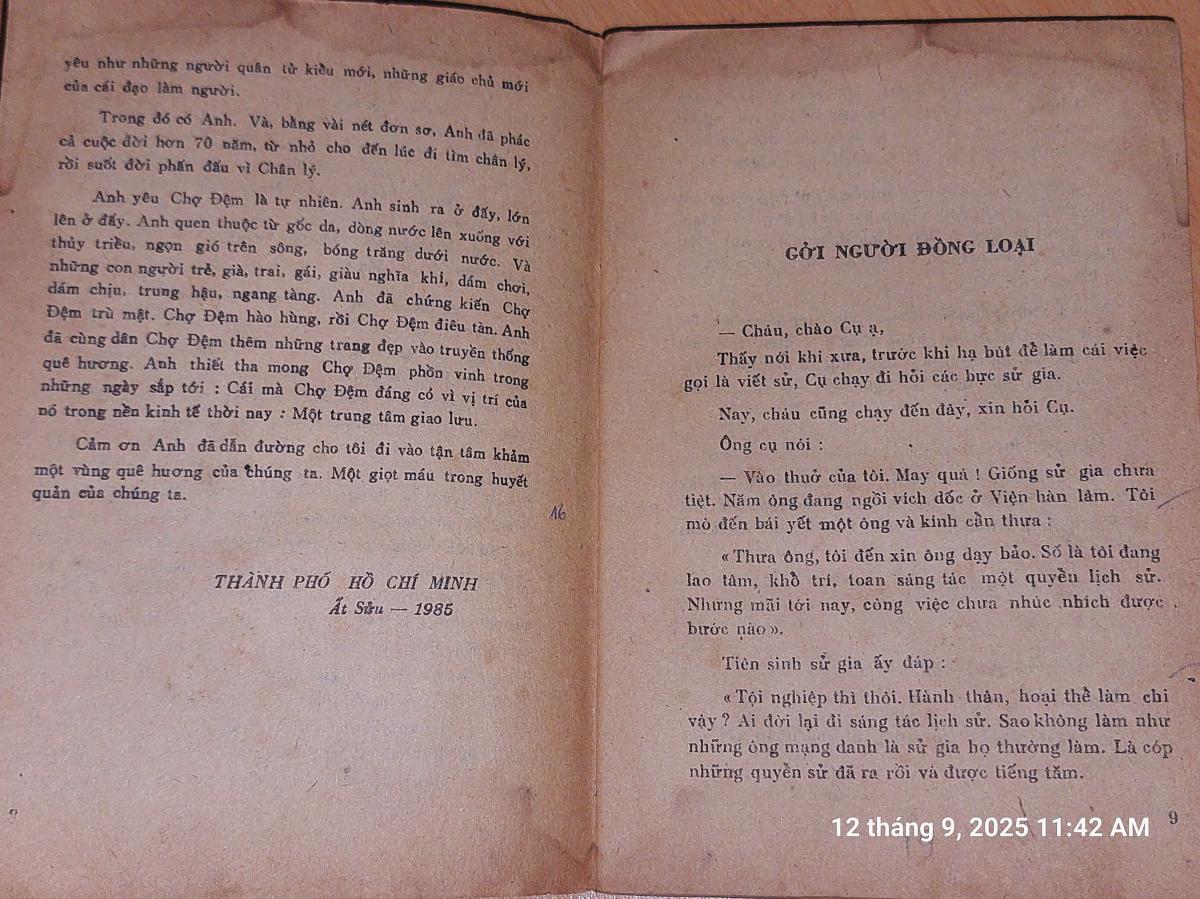 yêu như những người quân tử kiểu mới, những giáo chủ mới
của cái đạo làm người.
Trong đó có Anh. Và, bằng vài nét đơn sơ, Anh đã phác
cả cuộc đời hơn 70 năm, từ nhỏ cho đến lúc đi tìm chân lý,
rồi suốt đời phấn đấu vì Chân lý.
Anh yêu Chợ Đệm là tự nhiên. Anh sinh ra ở đấy, lớn
lên ở đấy. Anh quen thuộc từ gốc da, dòng nước lên xuống với
thủy triều, ngọn gió trên sông, bóng trăng dưới nước. Và
những con người trẻ, già, trai, gái, giàu nghĩa khí, dám chơi,
dám chịu, trung hậu, ngang tàng. Anh đã chứng kiến Chợ
Đệm trù mật. Chợ Đệm hào hùng, rồi Chợ Đệm điêu tàn. Anh
đã cùng dân Chợ Đệm thêm những trang đẹp vào truyền thống
quê hương. Anh thiết tha mong Chợ Đệm phồn vinh trong
những ngày sắp tới : Cái mà Chợ Đệm đáng có vì vị trí của
nó trong nền kinh tế thời nay : Một trung tâm giao lưu.
Cảm ơn Anh đã dẫn đường cho tôi đi vào tận tâm khảm
một vùng quê hương của chúng ta. Một giọt máu trong huyết
quản của chúng ta.
16
THÀNH PHỐ HỒ CHÍ MINH
Ất Sửu — 1985
GỞI NGƯỜI ĐỒNG LOẠI
— Cháu, chào Cụ ạ,
Thấy nói khi xưa, trước khi hạ bút để làm cái việc
gọi là viết sử, Cụ chạy đi hỏi các bực sử gia.
Nay, cháu cũng chạy đến đây, xin hỏi Cụ.
Ông cụ nói :
— Vào thuở của tôi. May quá ! Giống sử gia chưa
tiệt. Năm ông đang ngồi vích dốc ở Viện hàn lâm. Tôi
mò đến bái yết một ông và kính cần thưa :
« Thưa ông, tôi đến xin ông dạy bảo. Số là tôi đang
lao tâm, khổ trí, toan sáng tác một quyển lịch sử.
Nhưng mãi tới nay, công việc chưa nhúc nhích được
bước nào ».
Tiên sinh sử gia ấy đáp :
« Tội nghiệp thì thôi. Hành thân, hoại thể làm chi
vậy ? Ai đời lại đi sáng tác lịch sử. Sao không làm như
những ông mạng danh là sử gia họ thường làm. Là cóp
những quyển sử đã ra rồi và được tiếng tăm.
9
12 tháng 9, 2025 11:42 AM